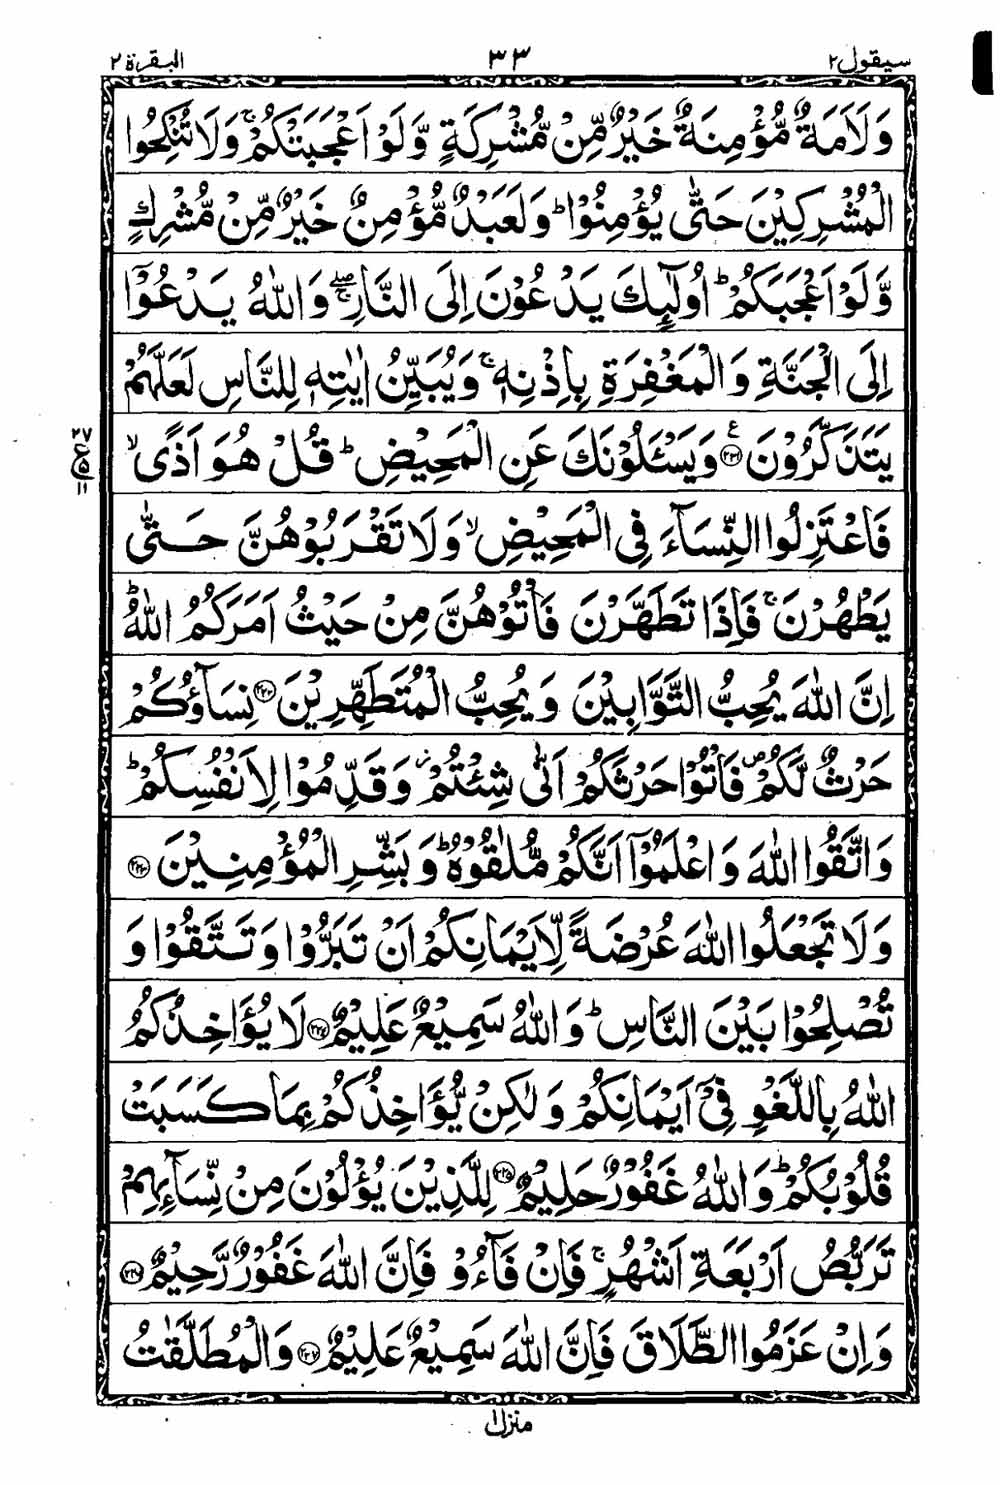 سیقول ٢
٣٣
البقرة ٢
وَلَاَمَةٌ مُّؤْمِنَةٌ خَيْرٌ مِّنْ مُّشْرِكَةٍ وَّلَوْ اَعْجَبَتْكُمْ ۚ وَلَا تُنْكِحُوا
الْمُشْرِكِيْنَ حَتّٰى يُؤْمِنُوْا ؕ وَلَعَبْدٌ مُّؤْمِنٌ خَيْرٌ مِّنْ مُّشْرِكٍ
وَّلَوْ اَعْجَبَكُمْ ؕ اُولٰٓئِكَ يَدْعُوْنَ اِلَى النَّارِ ۖۚ وَاللّٰهُ يَدْعُوْٓا
اِلَى الْجَنَّةِ وَالْمَغْفِرَةِ بِاِذْنِهٖ ۚ وَيُبَيِّنُ اٰيٰتِهٖ لِلنَّاسِ لَعَلَّهُمْ
يَتَذَكَّرُوْنَ ﴿٢٢١﴾ ع وَيَسْـَٔلُوْنَكَ عَنِ الْمَحِيْضِ ؕ قُلْ هُوَ اَذًى ۙ
٢٧
ع ٥
١١
فَاعْتَزِلُوا النِّسَآءَ فِى الْمَحِيْضِ ۙ وَلَا تَقْرَبُوْهُنَّ حَتّٰى
يَطْهُرْنَ ۚ فَاِذَا تَطَهَّرْنَ فَاْتُوْهُنَّ مِنْ حَيْثُ اَمَرَكُمُ اللّٰهُ ؕ
اِنَّ اللّٰهَ يُحِبُّ التَّوَّابِيْنَ وَيُحِبُّ الْمُتَطَهِّرِيْنَ ﴿٢٢٢﴾ نِسَآؤُكُمْ
حَرْثٌ لَّكُمْ ۪ فَاْتُوْا حَرْثَكُمْ اَنّٰى شِئْتُمْ ۫ وَقَدِّمُوْا لِاَنْفُسِكُمْ ؕ
وَاتَّقُوا اللّٰهَ وَاعْلَمُوْٓا اَنَّكُمْ مُّلٰقُوْهُ ؕ وَبَشِّرِ الْمُؤْمِنِيْنَ ﴿٢٢٣﴾
وَلَا تَجْعَلُوا اللّٰهَ عُرْضَةً لِّاَيْمَانِكُمْ اَنْ تَبَرُّوْا وَتَتَّقُوْا وَ
تُصْلِحُوْا بَيْنَ النَّاسِ ؕ وَاللّٰهُ سَمِيْعٌ عَلِيْمٌ ﴿٢٢٤﴾ لَا يُؤَاخِذُكُمُ
اللّٰهُ بِاللَّغْوِ فِىْٓ اَيْمَانِكُمْ وَلٰكِنْ يُّؤَاخِذُكُمْ بِمَا كَسَبَتْ
قُلُوْبُكُمْ ؕ وَاللّٰهُ غَفُوْرٌ حَلِيْمٌ ﴿٢٢٥﴾ لِلَّذِيْنَ يُؤْلُوْنَ مِنْ نِّسَآئِهِمْ
تَرَبُّصُ اَرْبَعَةِ اَشْهُرٍ ۚ فَاِنْ فَآءُوْ فَاِنَّ اللّٰهَ غَفُوْرٌ رَّحِيْمٌ ﴿٢٢٦﴾
وَاِنْ عَزَمُوا الطَّلَاقَ فَاِنَّ اللّٰهَ سَمِيْعٌ عَلِيْمٌ ﴿٢٢٧﴾ وَالْمُطَلَّقٰتُ
منزل ١